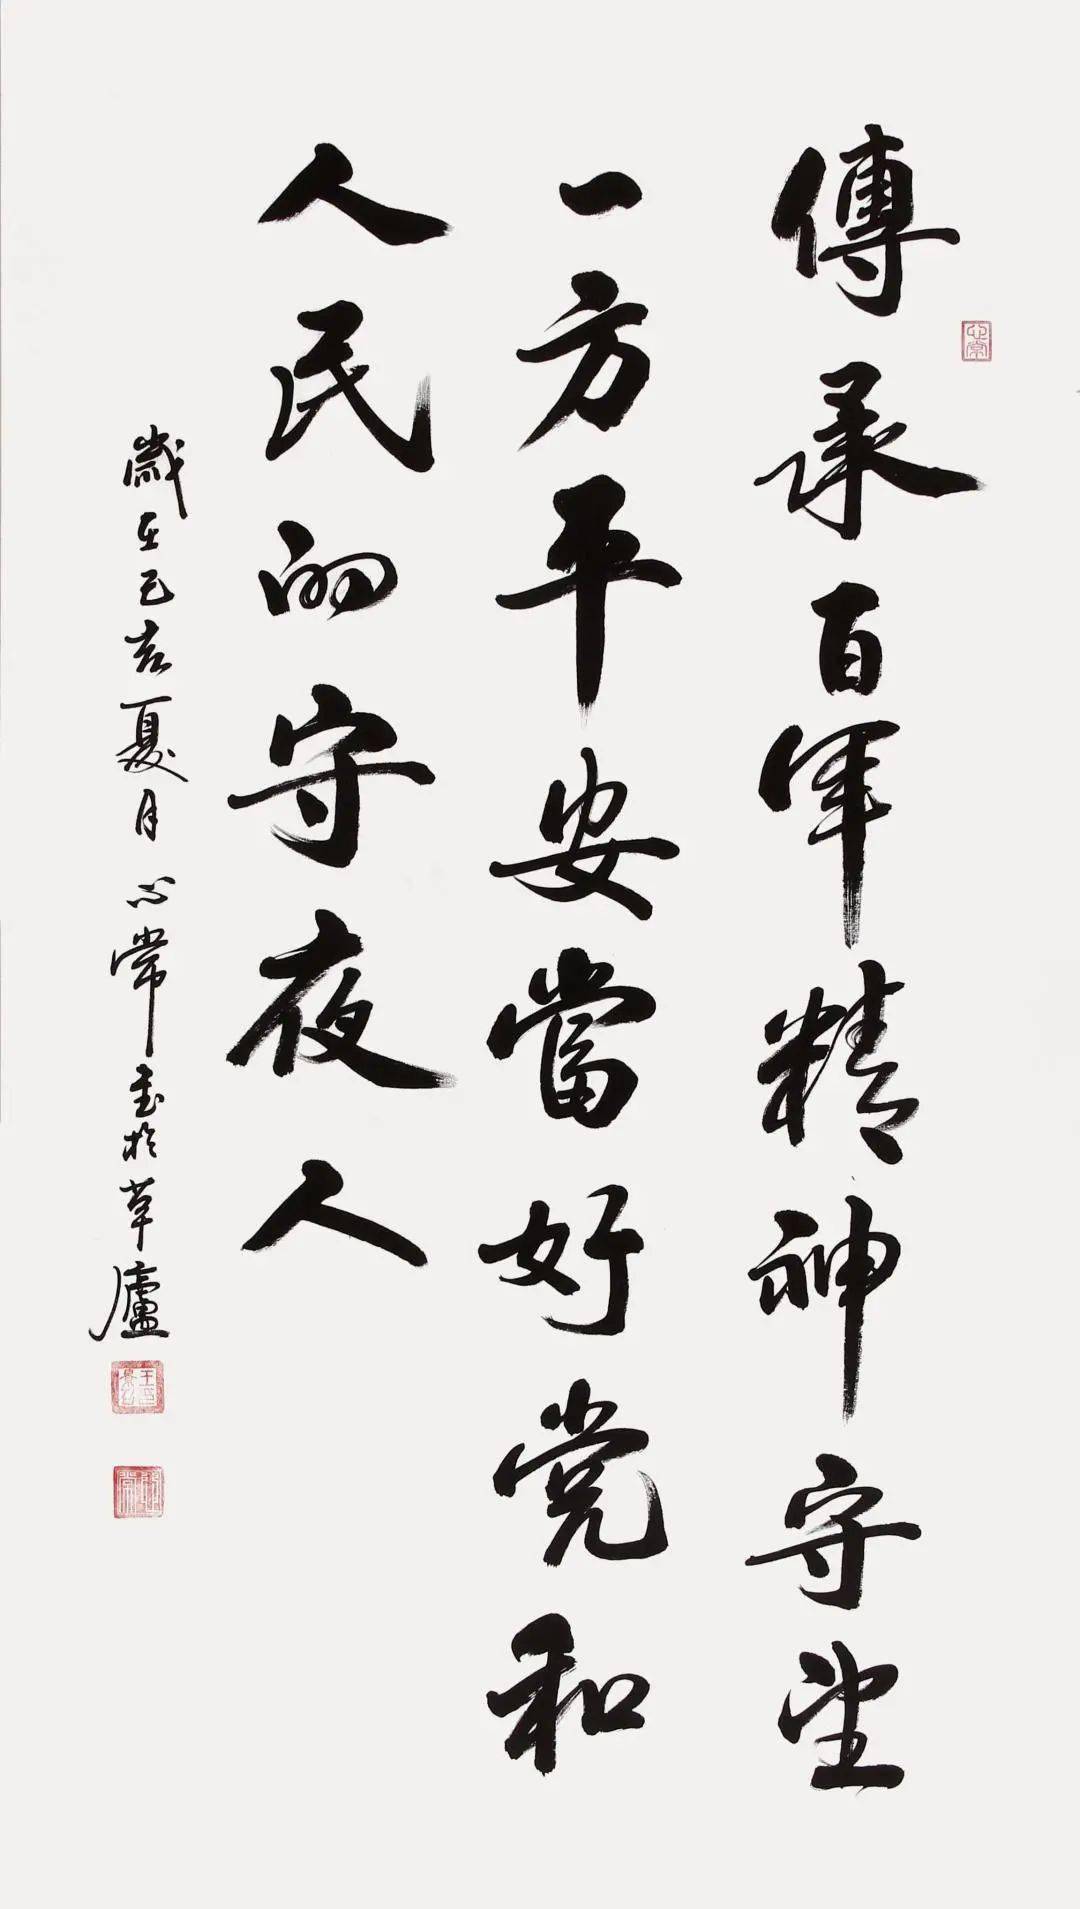 傳承百年精神守望
一方平安當好党和
人民的守夜人
歲在己亥夏月心常書於草廬